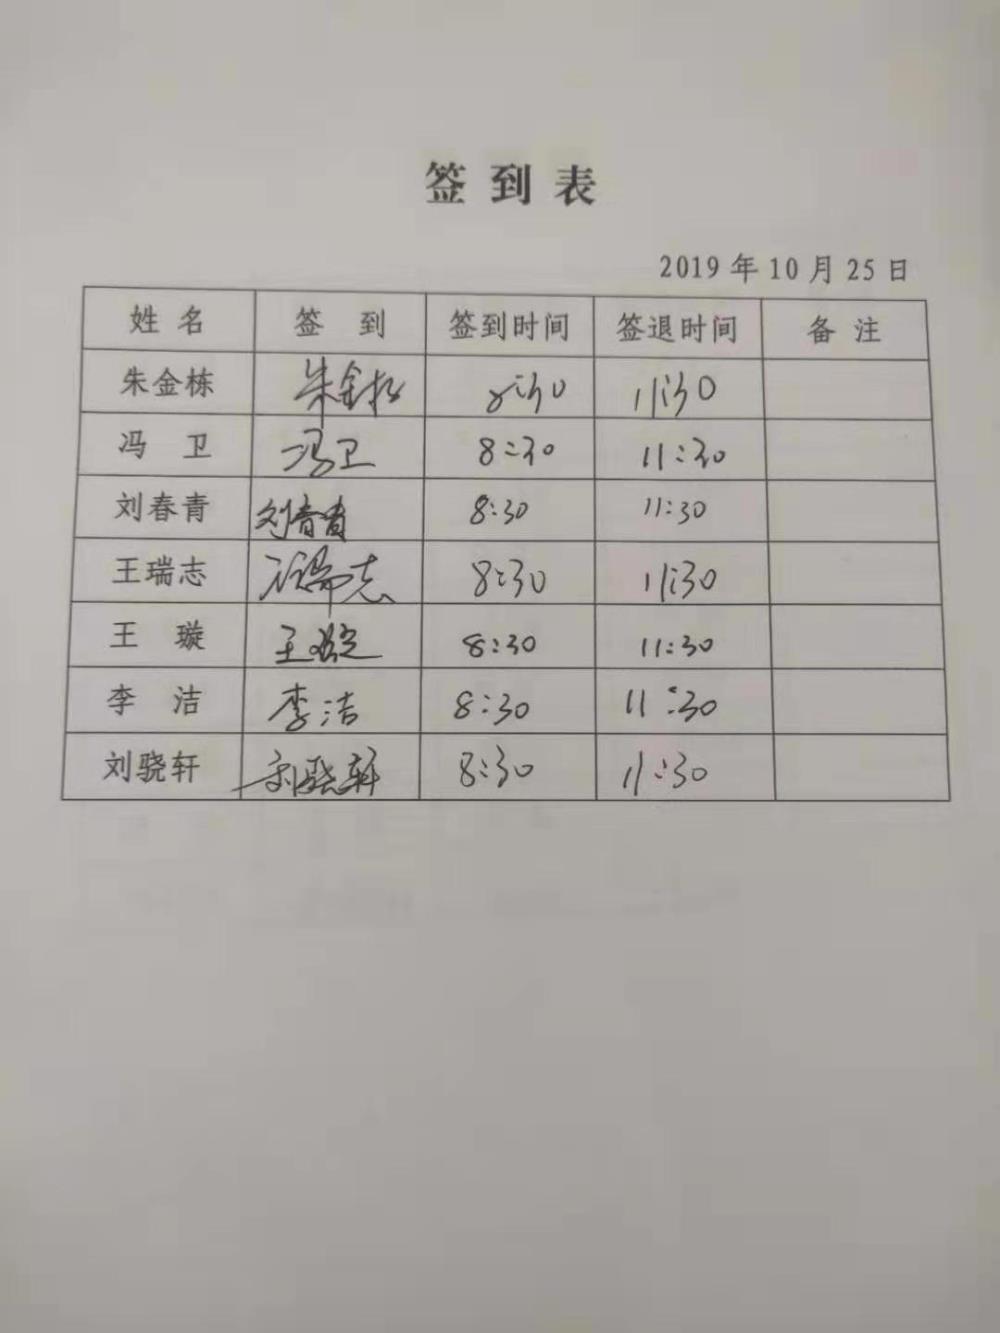 签到表
2019年10月25日
姓名 签到 签到时间 签退时间 备注
朱金栋 朱金栋 8:30 11:30
冯卫 冯卫 8:30 11:30
刘春青 刘春青 8:30 11:30
王瑞志 王瑞志 8:30 11:30
王璇 王璇 8:30 11:30
李洁 李洁 8:30 11:30
刘骁轩 刘骁轩 8:30 11:30